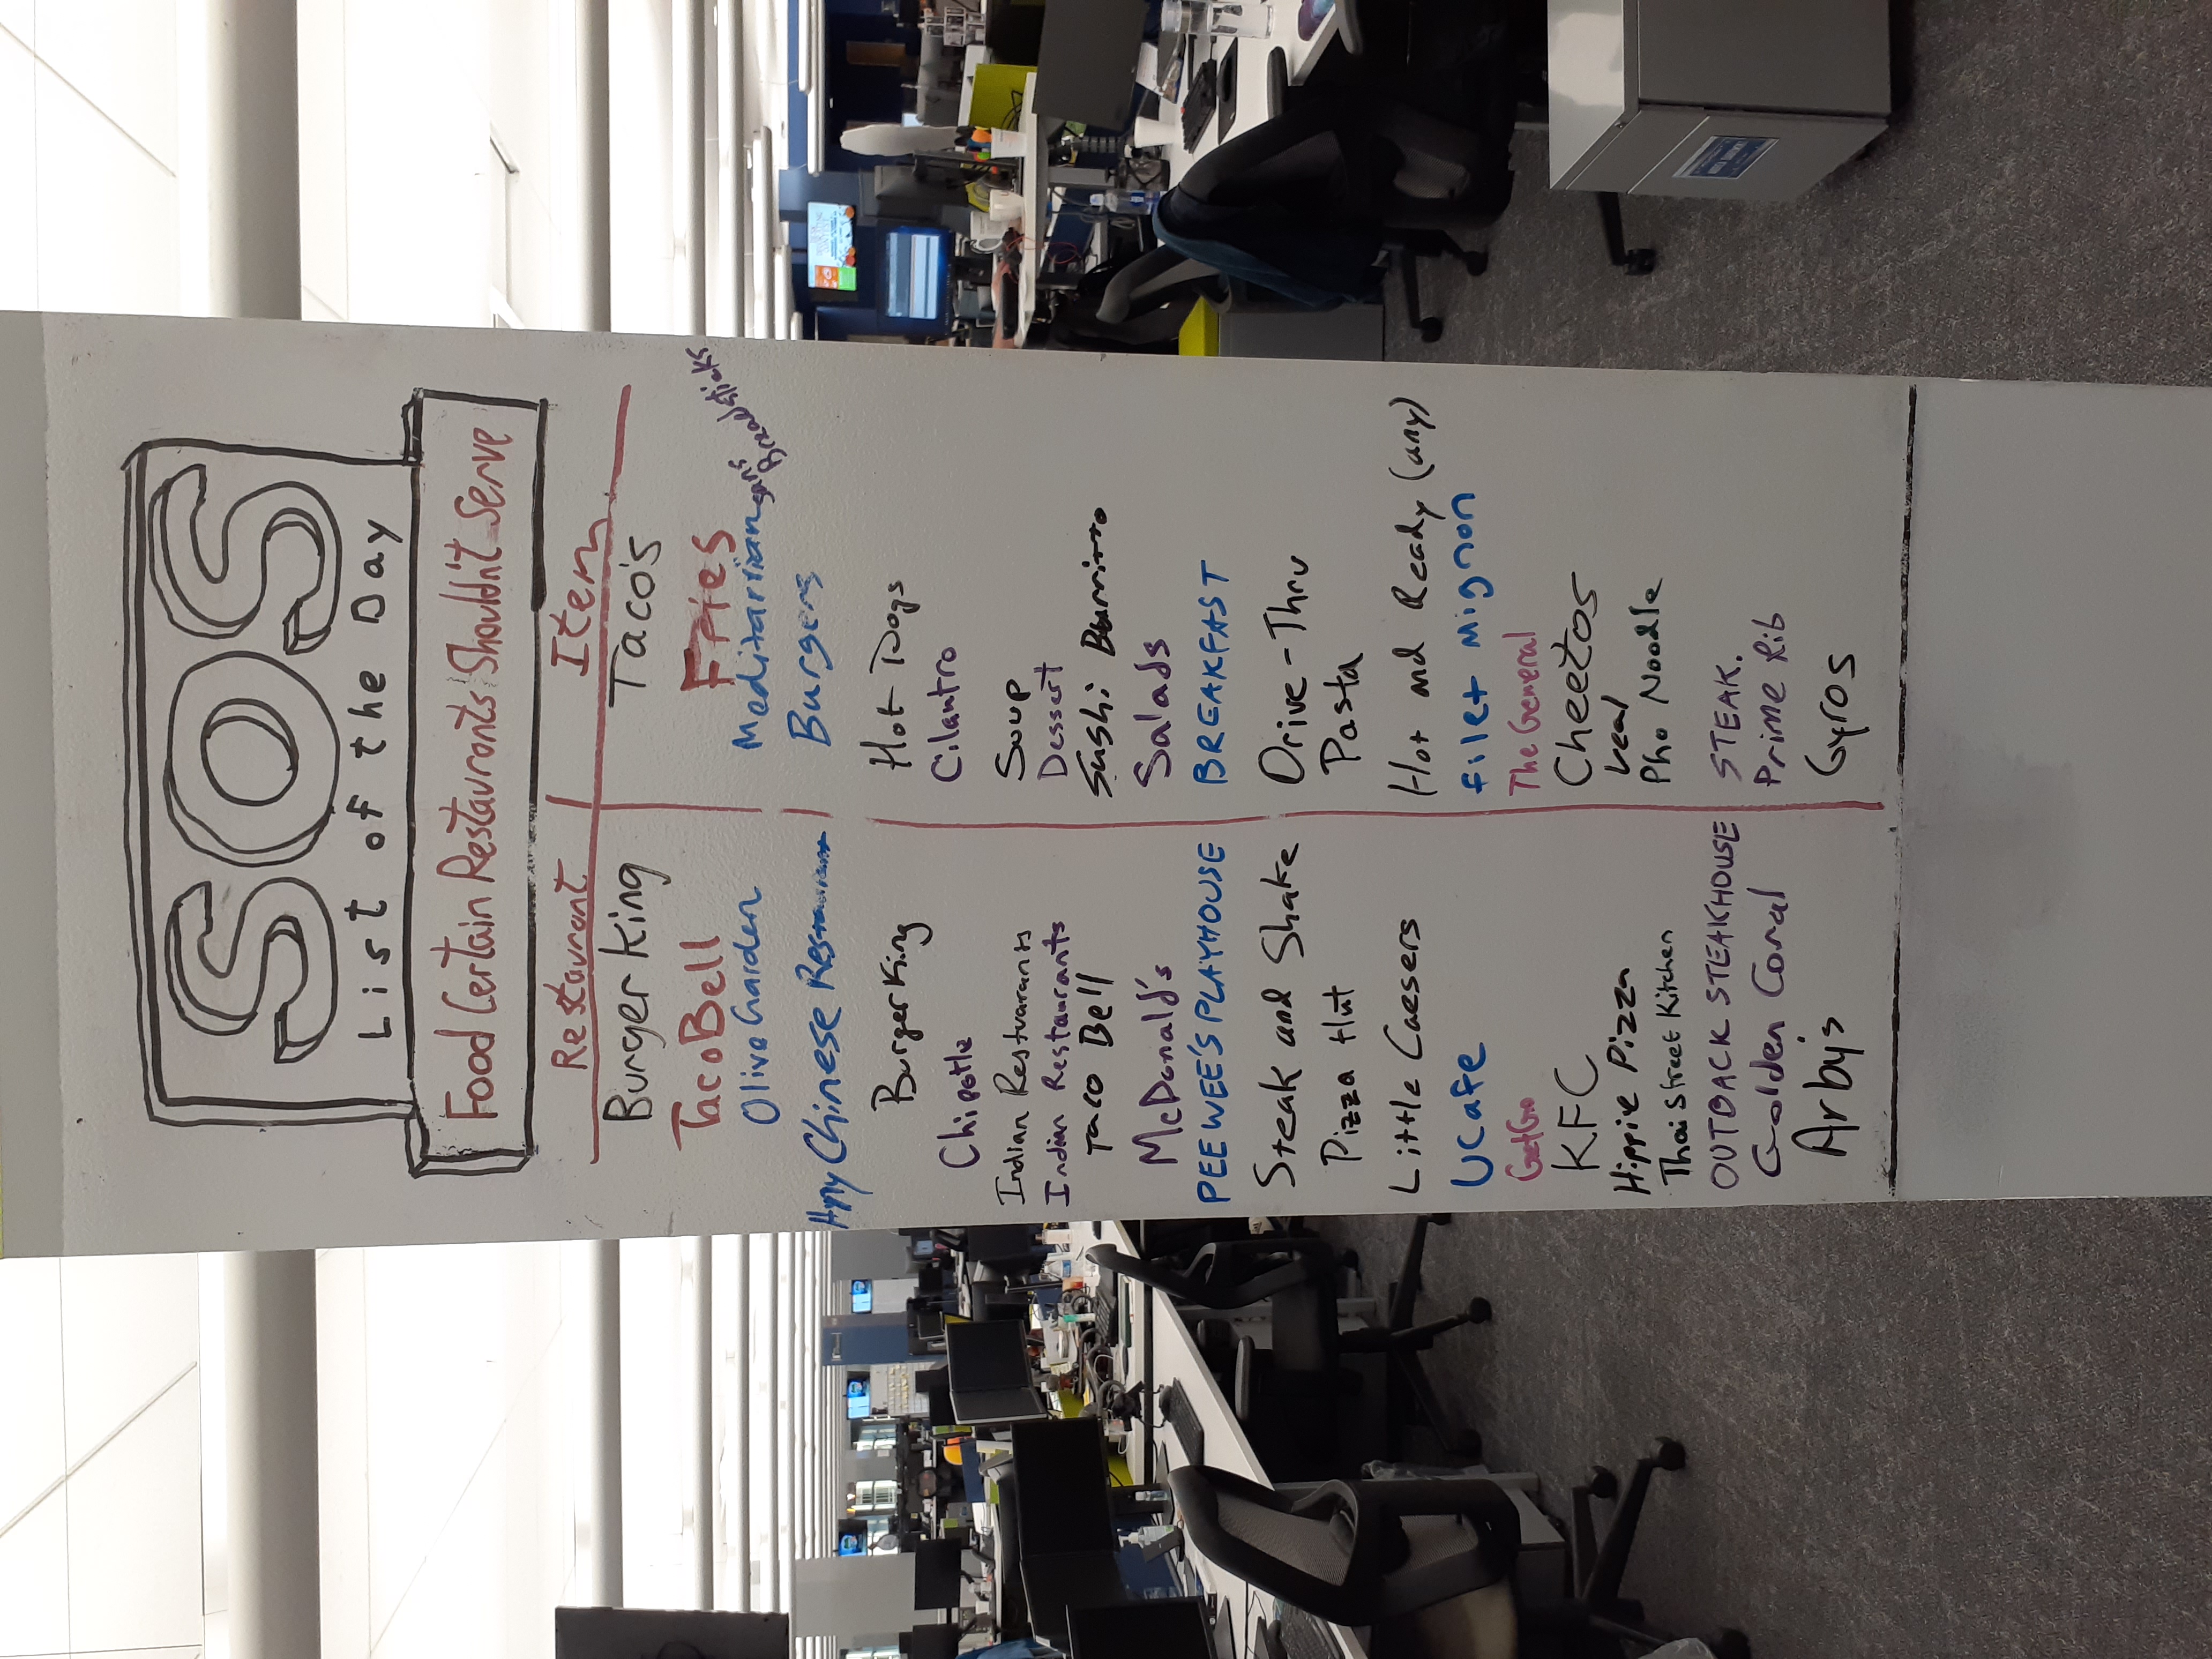 SOS
List of the Day
Food Certain Restaurants Shouldn't Serve
Restaurant Item
Burger King Taco's
Taco Bell Fries
Olive Garden Meditarrian sans Breadsticks
Chinese Restaurant Burgers
Burger King Hot Dogs
Chipotle Cilantro
Indian Restuarants Soup
Indian Restaurants Dessert
Taco Bell Sushi Burritto
McDonald's Salads
PEE WEE'S PLAYHOUSE BREAKFAST
Steak and Shake Drive-Thru
Pizza Hut Pasta
Little Caesers Hot and Ready (any)
UCafe Filet Mignon
GetGo The General
KFC Cheetos
Hippie Pizza Veal
Thai Street Kitchen Pho Noodle
OUTBACK STEAKHOUSE STEAK.
Golden Corral Prime Rib
Arby's Gyros